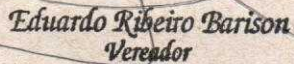 Eduardo Ribeiro Barison
Vereador